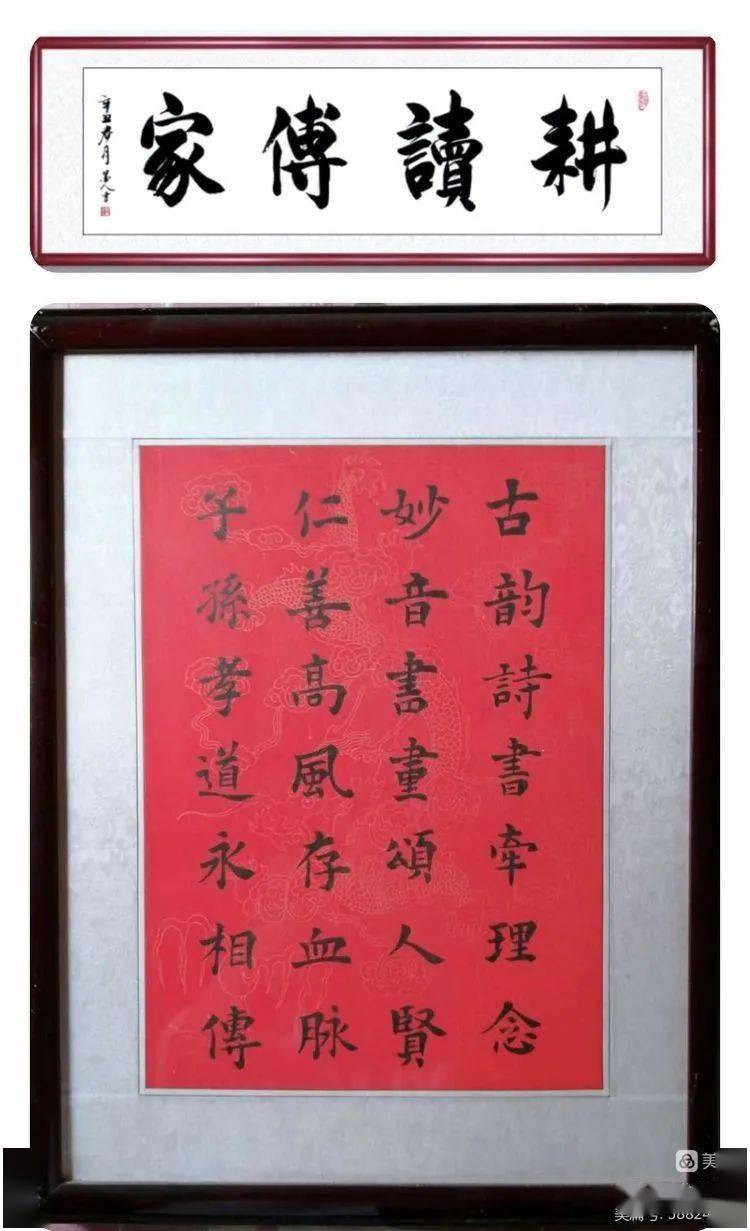 耕讀傳家
辛丑春月
古韵詩書牽理念
妙音書畫頌人賢
仁善高風存血脉
子孫孝道永相傳
美